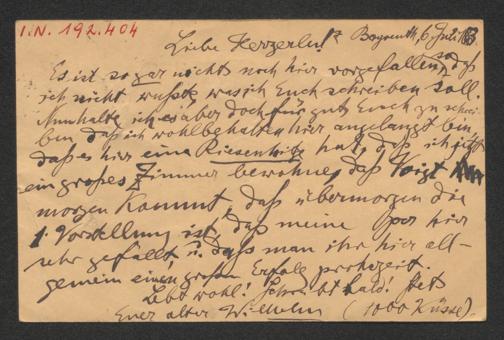 I.N. 192.404
Bayreuth, 6. Juli 83
Liebe Herzerln!
Es ist so gar nichts noch hier vorgefallen, so daß
ich nicht wußte was ich Euch schreiben soll.
Nun halte ich es aber doch für gut Euch zu schrei-
ben daß ich wohlbehalten hier angelangt bin,
daß es hier eine Riesenhitze hat, daß ich jetzt
ein großes Zimmer bewohne, daß Voigt
morgen kommt, daß übermorgen die
1. Vorstellung ist, daß meine hier
sehr gefällt u. daß man ihr hier all-
gemein einen großen Erfolg prophezeit.
Lebt wohl! Schreibt bald! Stets
Euer alter Wilhelm (1000 Küsse)